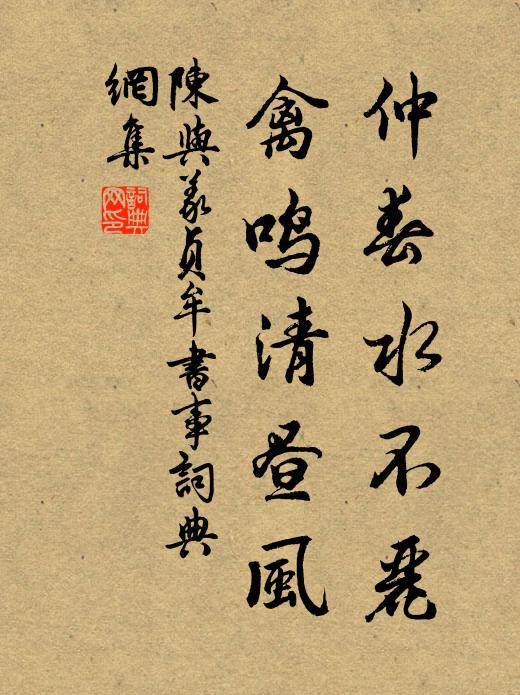 仲春水不麗
禽鳴清晝風
陳與義貞牟書事詞典
網集
詞典
网印